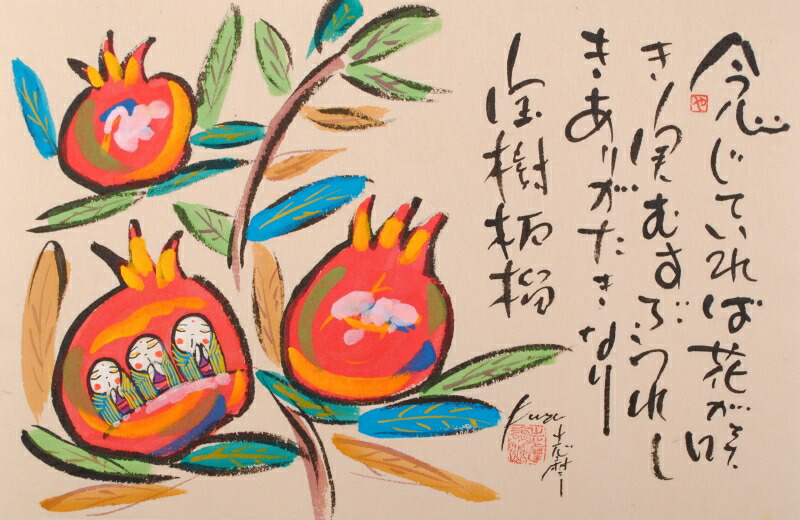 念じていれば花が咲
き実むすぶうれし
きありがたきなり
宝樹柘榴
や